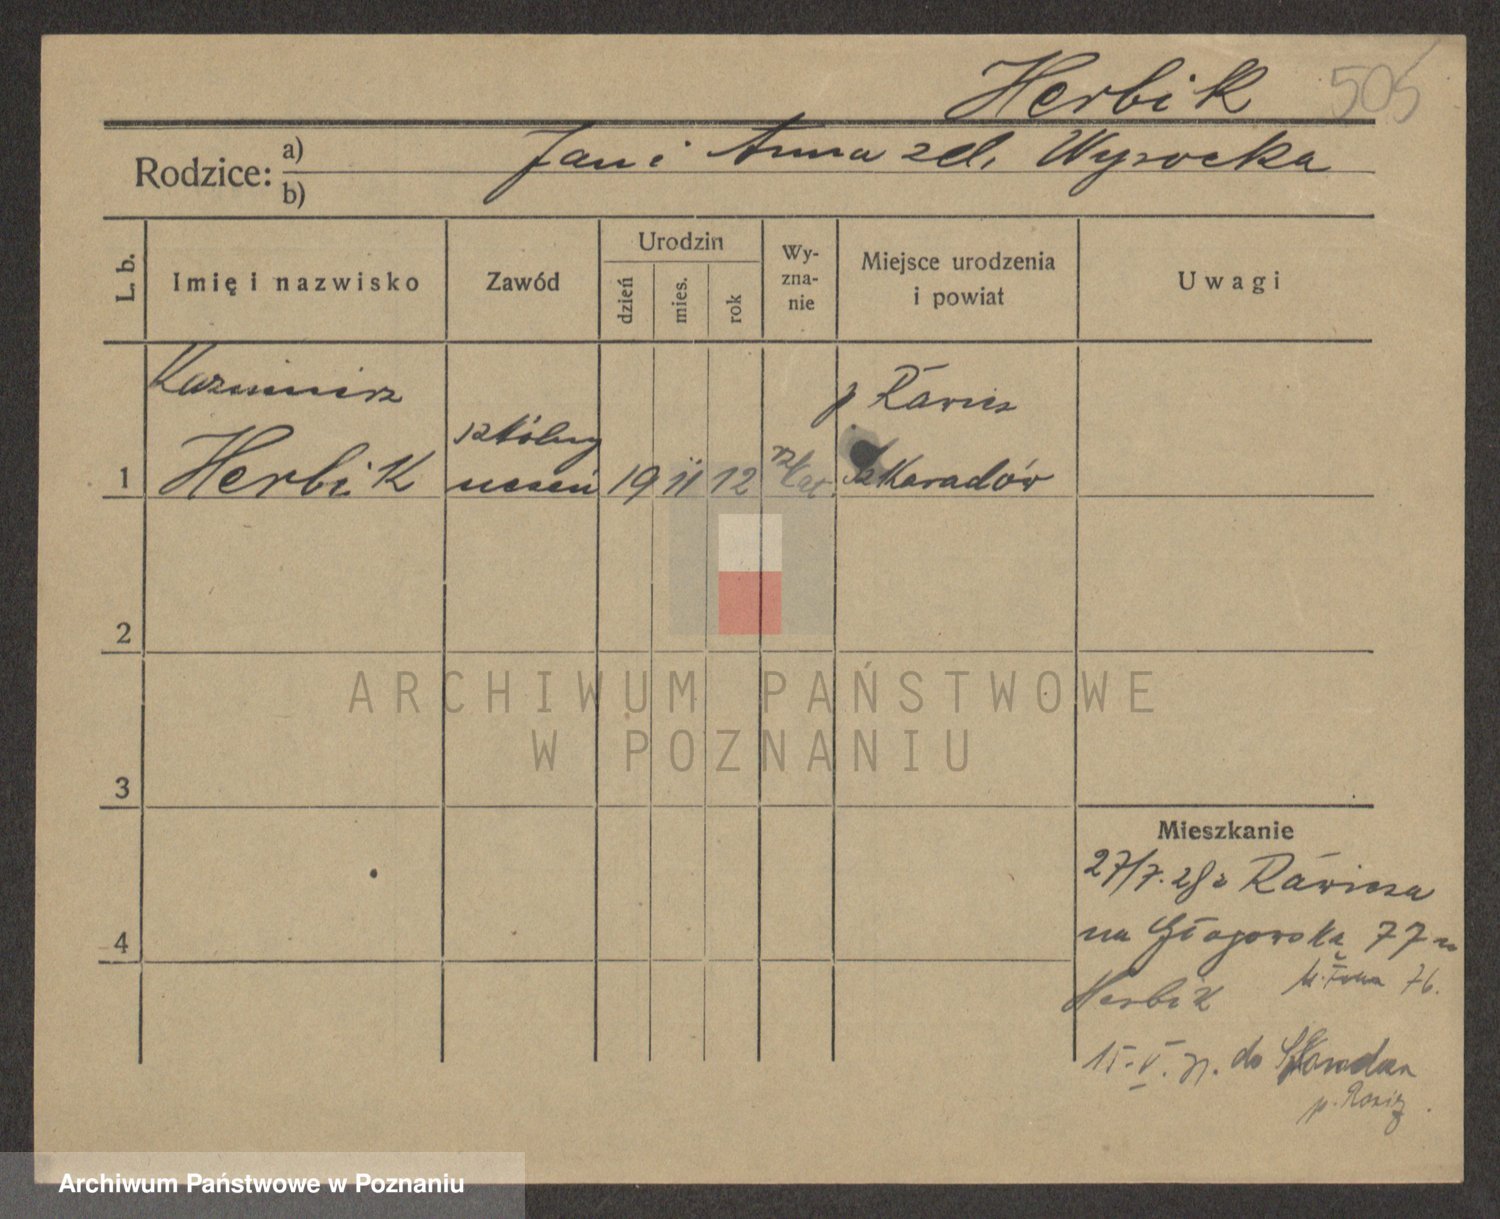 Herbik 505
Rodzice: a) b) Jan i Anna zd. Wysocka
L. b.
Imię i nazwisko
Zawód
Urodzin
dzień
mies.
rok
Wy-
zna-
nie
Miejsce urodzenia
i powiat
Uwagi
Kazimierz
p Rawicz
szkolny
1 Herbik uczeń 19 11 12 rz kat. Szkaradów
2
ARCHIWUM PAŃSTWOWE
W POZNANIU
3
Mieszkanie
27/7.28 z Rawicza
4
na Głogowska 77 u
Herbik 76.
15.V. do
p.
Archiwum Państwowe w Poznaniu